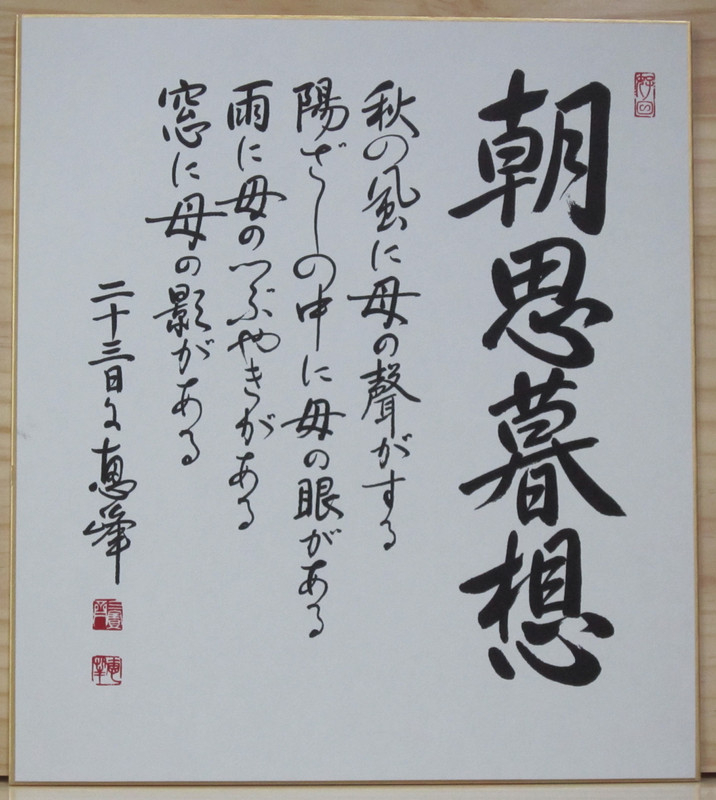 朝思暮想
秋の風に母の聲がする
陽ざしの中に母の眼がある
雨に母のつぶやきがある
窓に母の影がある
二十三日に 恵峰